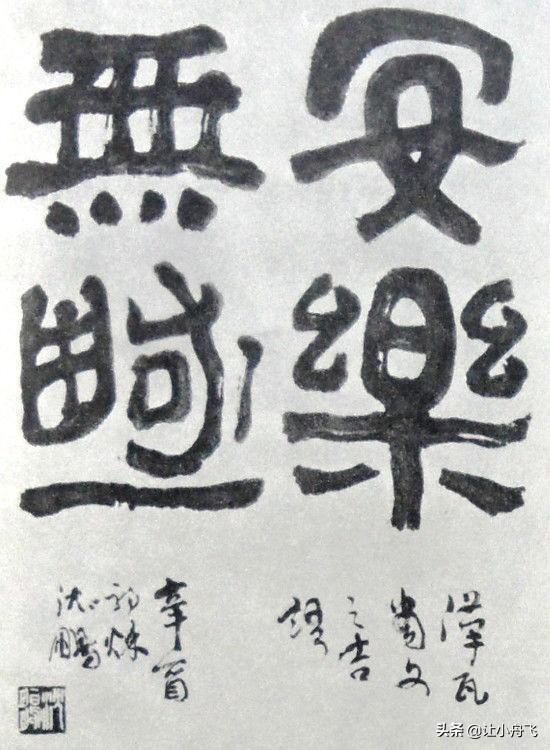 安樂
無極
漢瓦
當文
之吉
語
辛酉
初秋
沈鵬
头条 @让小丹飞